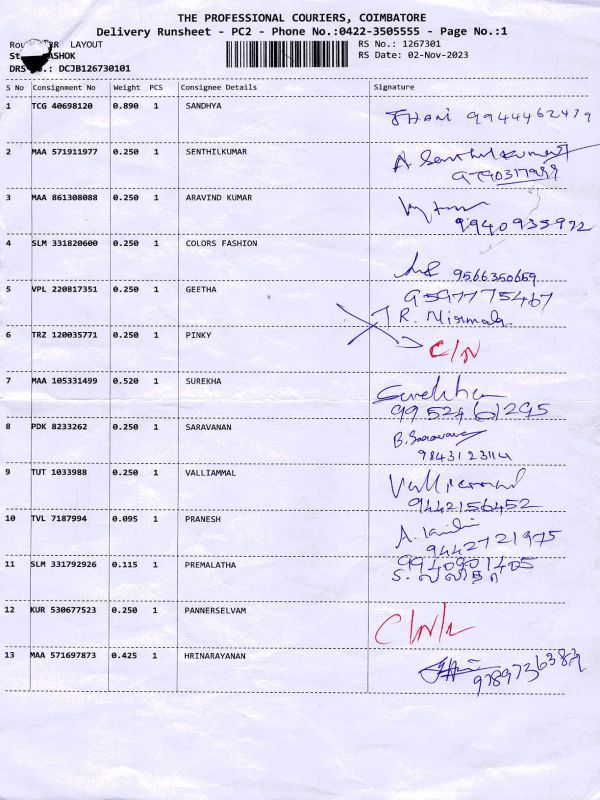 THE PROFESSIONAL COURIERS, COIMBATORE
Delivery Runsheet - PC2 - Phone No.:0422-3505555 - Page No.:1
LAYOUT RS No.: 1267301
ASHOK RS Date: 02-Nov-2023
DRS No.: DCJB126730101
S No Consignment No Weight PCS Consignee Details Signature
1 TCG 40698120 0.890 1 SANDHYA
9944462479
2 MAA 571911977 0.250 1 SENTHILKUMAR
A Senthilkumar
3 MAA 861308088 0.250 1 ARAVIND KUMAR
9940935972
4 SLM 331820600 0.250 1 COLORS FASHION
9566350659
5 VPL 220817351 0.250 1 GEETHA
9597775467
R. Nirmala
6 TRZ 120035771 0.250 1 PINKY
C/N
7 MAA 105331499 0.520 1 SUREKHA
Surekha
8 PDK 8233262 0.250 1 SARAVANAN
B. Saravanan
9843123114
9 TUT 1033988 0.250 1 VALLIAMMAL
Valliammal
9442156452
10 TVL 7187994 0.095 1 PRANESH
9442721975
11 SLM 331792926 0.115 1 PREMALATHA
9940901405
12 KUR 530677523 0.250 1 PANNERSELVAM
13 MAA 571697873 0.425 1 HRINARAYANAN